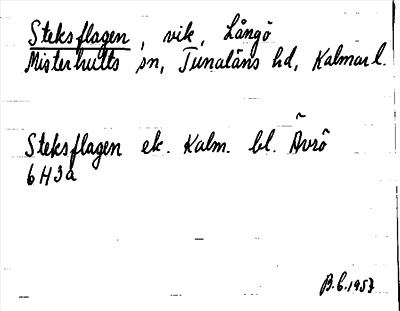 Steksflagen, vik, Långö
Misterhults sn, Tunaläns hd, Kalmar l.
Steksflagen ek. Kalm. bl. Ävrö
6H3a
B.C. 1957